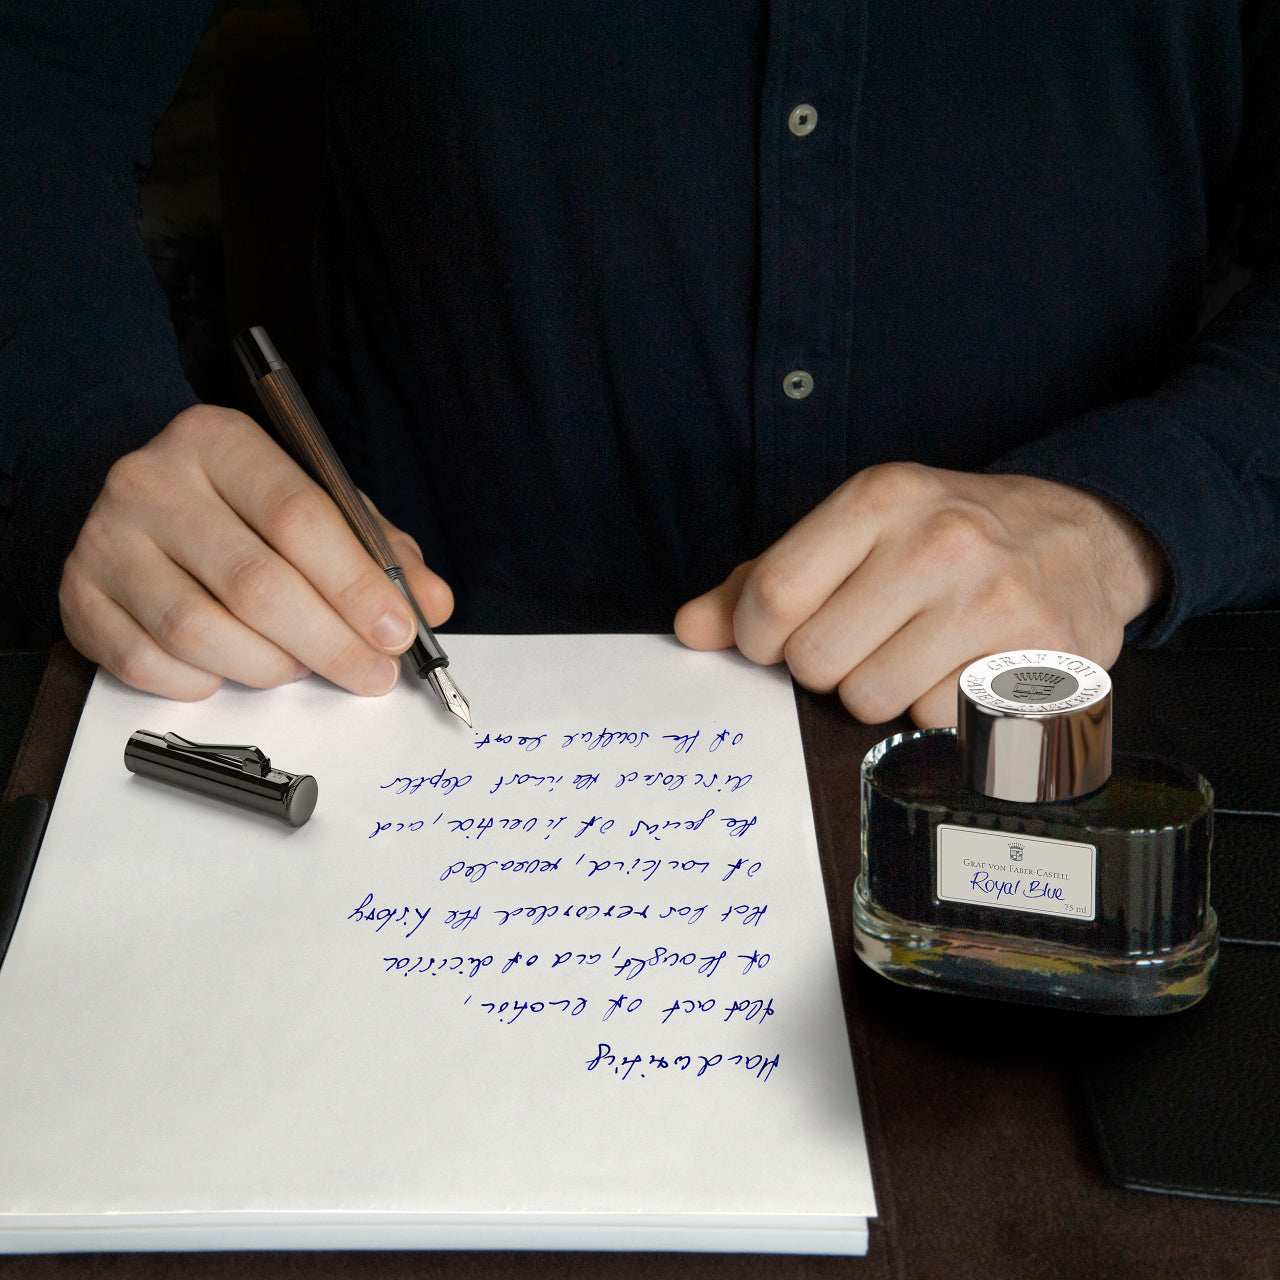 Handwriting
that act of emotion,
of thought, and of decision
that has recorded the history
of mankind, revealed
the genius of invention, and
disclosed the inmost depths
of the soulful heart.
GRAF VON
FABER-CASTELL
GRAF VON FABER-CASTELL
Royal Blue
75 ml